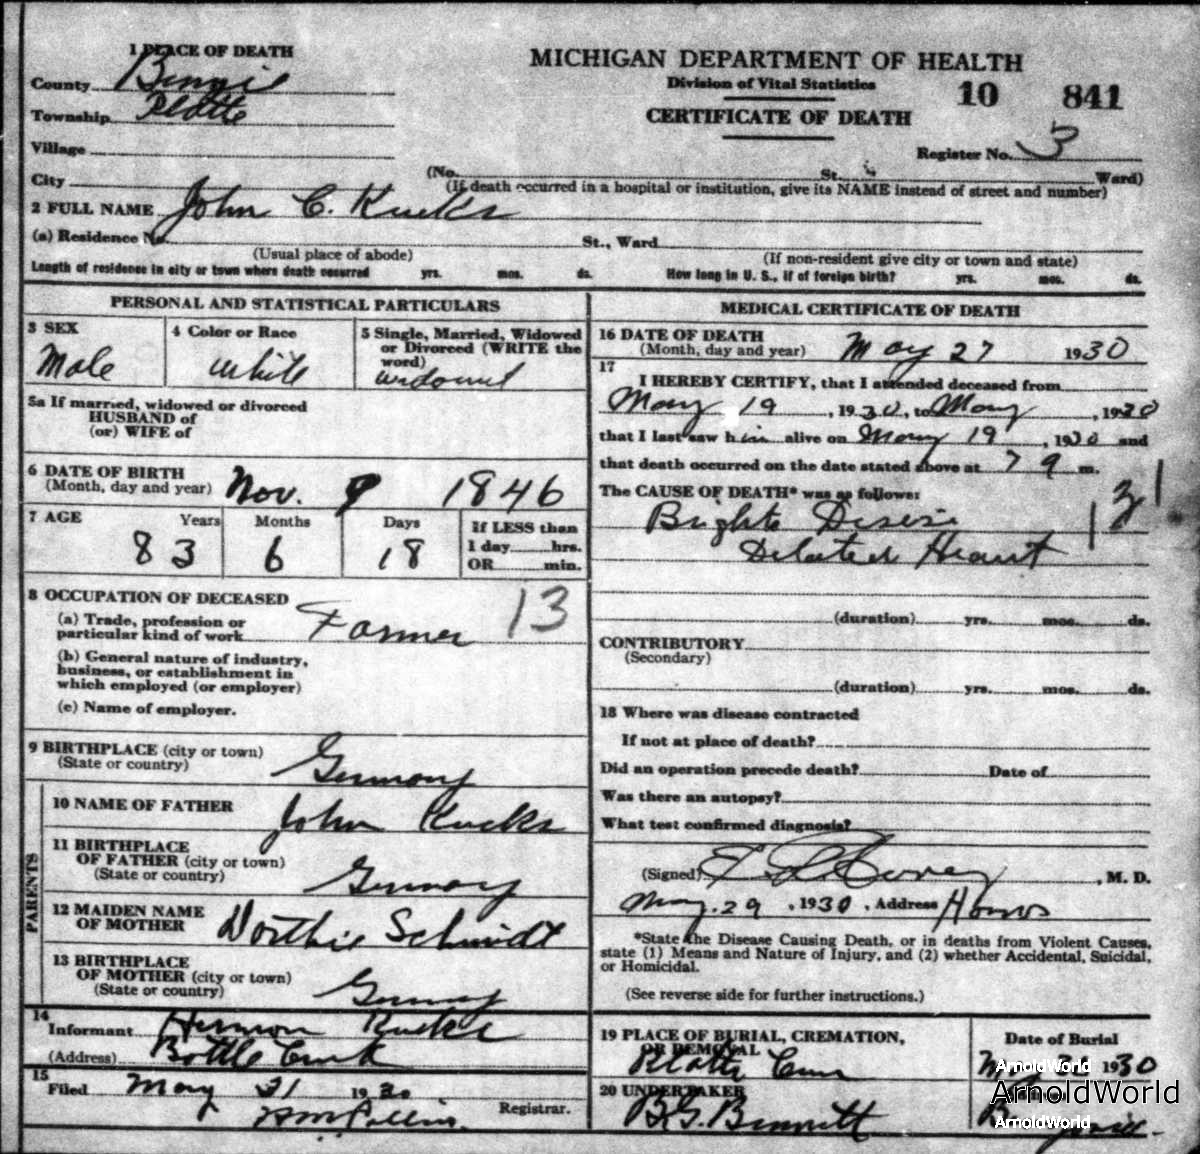 1 PLACE OF DEATH
County Benzie
Township Platte
Village
City
MICHIGAN DEPARTMENT OF HEALTH
Division of Vital Statistics
CERTIFICATE OF DEATH
10 841
Register No. 3
(No. St. Ward)
(If death occurred in a hospital or institution, give its NAME instead of street and number)
2 FULL NAME John C. Kucks
(a) Residence No. St., Ward
(Usual place of abode) (If non-resident give city or town and state)
Length of residence in city or town where death occurred yrs. mos. ds. How long in U. S., if of foreign birth? yrs. mos. ds.
PERSONAL AND STATISTICAL PARTICULARS
3 SEX
Male
4 Color or Race
White
5 Single, Married, Widowed
or Divorced (WRITE the
word)
widowed
5a If married, widowed or divorced
HUSBAND of
(or) WIFE of
6 DATE OF BIRTH
(Month, day and year) Nov. 9 1846
7 AGE Years Months Days
83 6 18
If LESS than
1 day hrs.
OR min.
8 OCCUPATION OF DECEASED
(a) Trade, profession or
particular kind of work Farmer 13
(b) General nature of industry,
business, or establishment in
which employed (or employer)
(c) Name of employer.
9 BIRTHPLACE (city or town)
(State or country) Germany
PARENTS
10 NAME OF FATHER John Kucks
11 BIRTHPLACE
OF FATHER (city or town)
(State or country) Germany
12 MAIDEN NAME
OF MOTHER Dorthie Schmidt
13 BIRTHPLACE
OF MOTHER (city or town)
(State or country) Germany
14
Informant Herman Kucks
(Address)
15
Filed May 31 1930
Registrar.
MEDICAL CERTIFICATE OF DEATH
16 DATE OF DEATH
(Month, day and year) May 27 1930
17
I HEREBY CERTIFY, that I attended deceased from
May 19, 1930, to May, 1930
that I last saw him alive on May 19, 1930 and
that death occurred on the date stated above at 7 m.
The CAUSE OF DEATH* was as follows:
Brights
Dilated Heart
(duration) yrs. mos. ds.
CONTRIBUTORY
(Secondary)
(duration) yrs. mos. ds.
18 Where was disease contracted
If not at place of death?
Did an operation precede death? Date of
Was there an autopsy?
What test confirmed diagnosis?
(Signed) , M. D.
May 29, 1930, Address Honor
*State the Disease Causing Death, or in deaths from Violent Causes,
state (1) Means and Nature of Injury, and (2) whether Accidental, Suicidal,
or Homicidal.
(See reverse side for further instructions.)
19 PLACE OF BURIAL, CREMATION,
OR REMOVAL
Platte Cem
Date of Burial
1930
20 UNDERTAKER
B.G. Bennett
ArnoldWorld
ArnoldWorld
ArnoldWorld